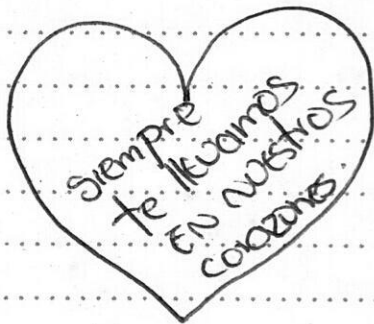 siempre
te llevamos
EN NUEStros
corazones